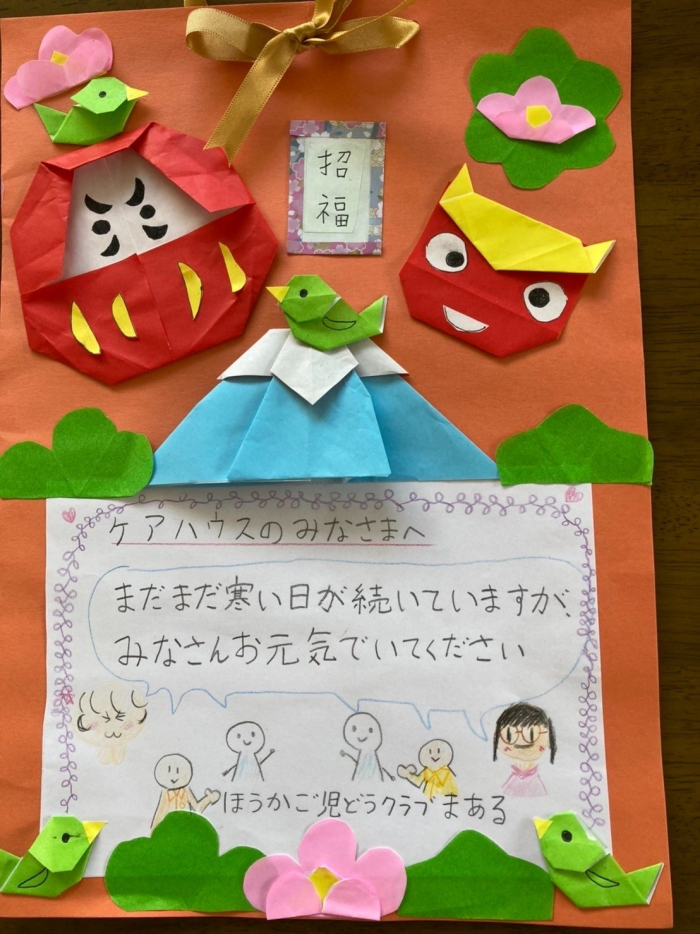 招
福
ケアハウスのみなさまへ
まだまだ寒い日が続いていますが、
みなさんお元気でいてください
ほうかご児どうクラブまある